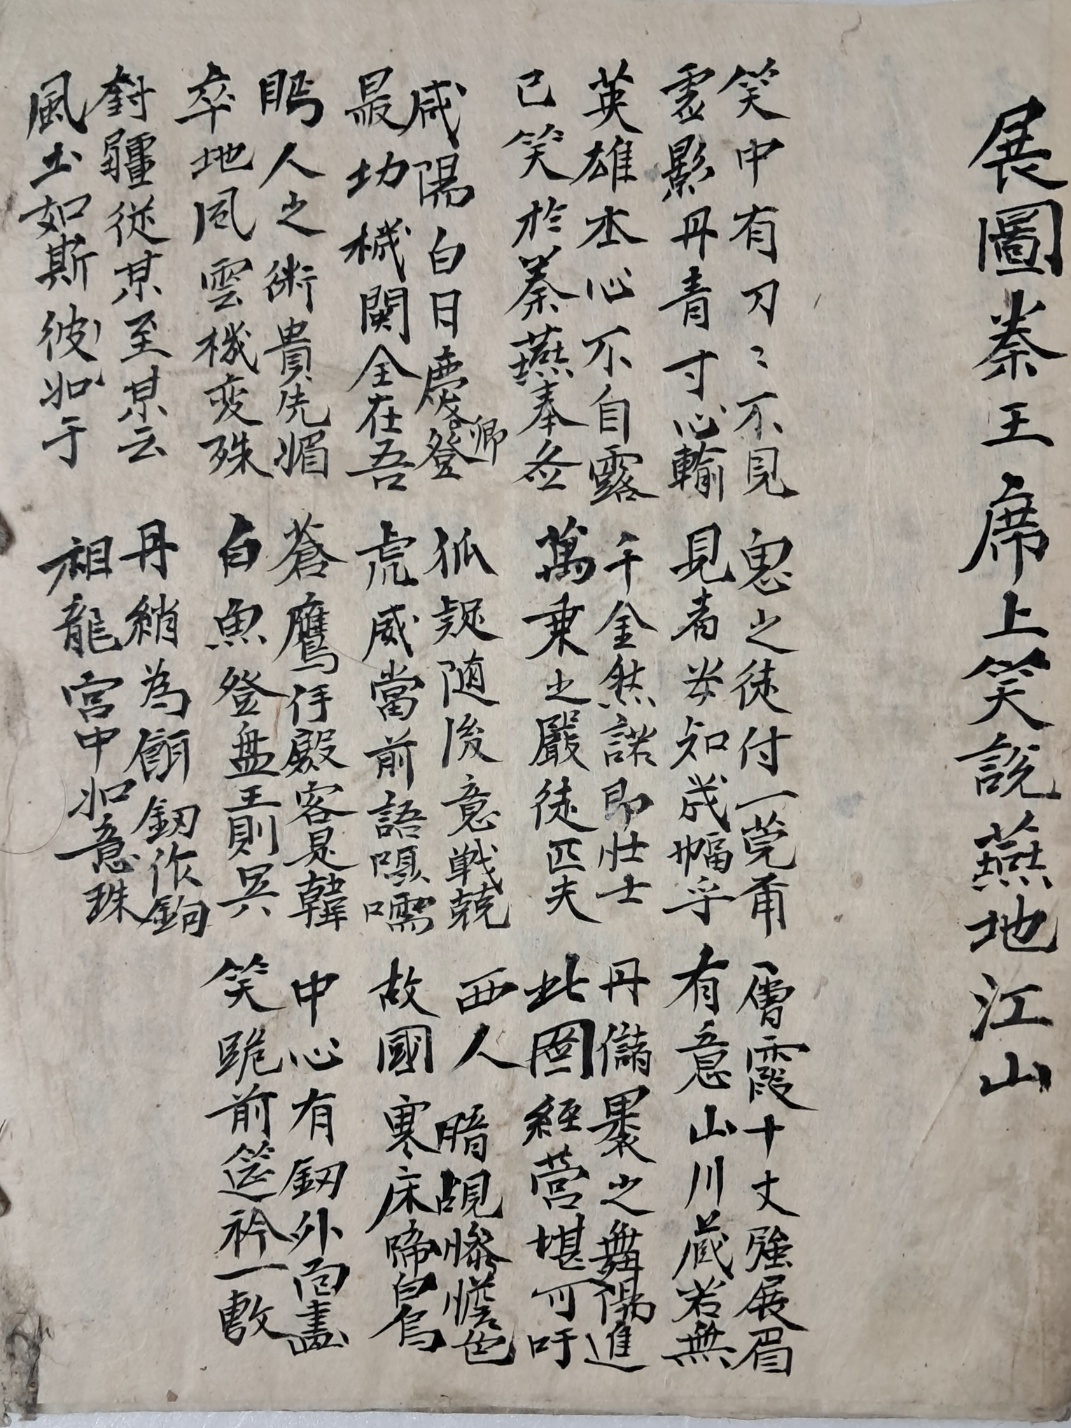 展圖秦王席上笑說燕地江山
笑中有刀〻不見
霊影丹青寸心輸
鬼之徒付一莞甭
見者安知咸幅乎
一層霞十丈強展眉
有意山川藏若無
英雄本心不自露
已笑於秦燕奉圖
千金然諾即壮士
萬乗之嚴徒匹夫
丹儲暴之舞陽進
此圖經營堪可吁
咸陽白日慶卿登
最功機関全在吾
狐疑随後意戦兢
虎威當前語囁嚅
西人暗覘慘憺色
故國寒床啼白烏
眄人之術貴先媚
卒地風雲機変殊
蒼鷹仵殿客是韓
白魚登盤王則吳
中心有釼外面畵
笑跪前筵衿一敷
封疆從某至某云
風土如斯彼如于
丹綃為餌釼作鉤
祖龍宮中如意珠